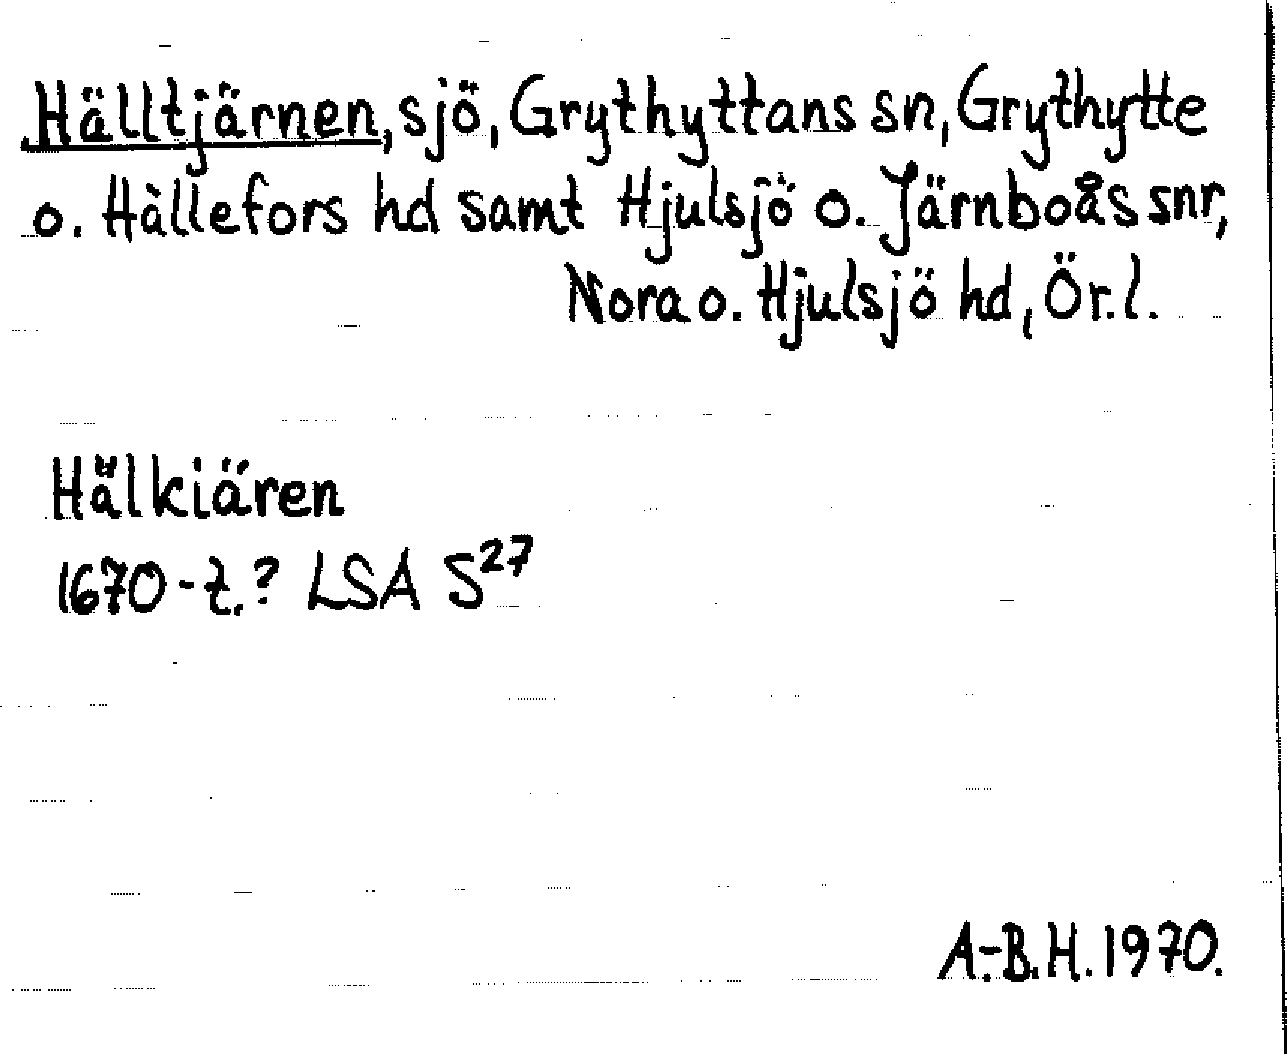 Hälltjärnen, sjö, Grythyttans sn, Grythytte
o. Hällefors hd samt Hjulsjö o. Järnboås snr,
Nora o. Hjulsjö hd, Ör. l.
Hälkiären
1670-t.? LSA S27
A.-B.H. 1970.